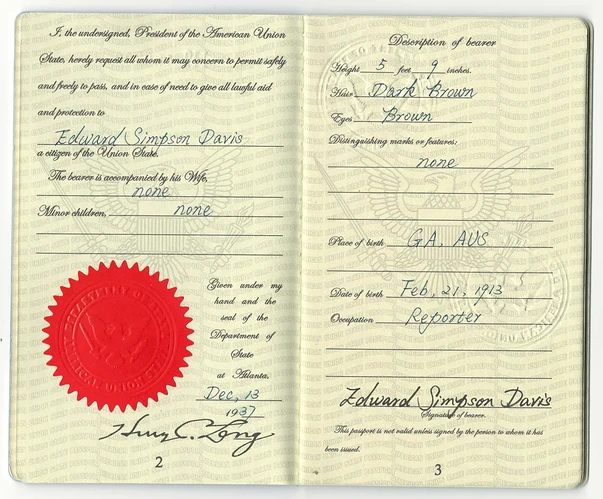 I, the undersigned, President of the American Union
State, hereby request all whom it may concern to permit safely
and freely to pass, and in case of need to give all lawful aid
and protection to
Edward Simpson Davis
a citizen of the Union State.
The bearer is accompanied by his Wife,
none
Minor children, none
Given under my
hand and the
seal of the
Department of
State
at Atlanta,
Dec, 13
1937
2
Description of bearer
Height 5 feet 9 inches.
Hair Dark Brown
Eyes Brown
Distinguishing marks or features:
none
Place of birth GA, AUS
Date of birth Feb, 21, 1913
Occupation Reporter
Edward Simpson Davis
Signature of bearer.
This passport is not valid unless signed by the person to whom it has
been issued.
3